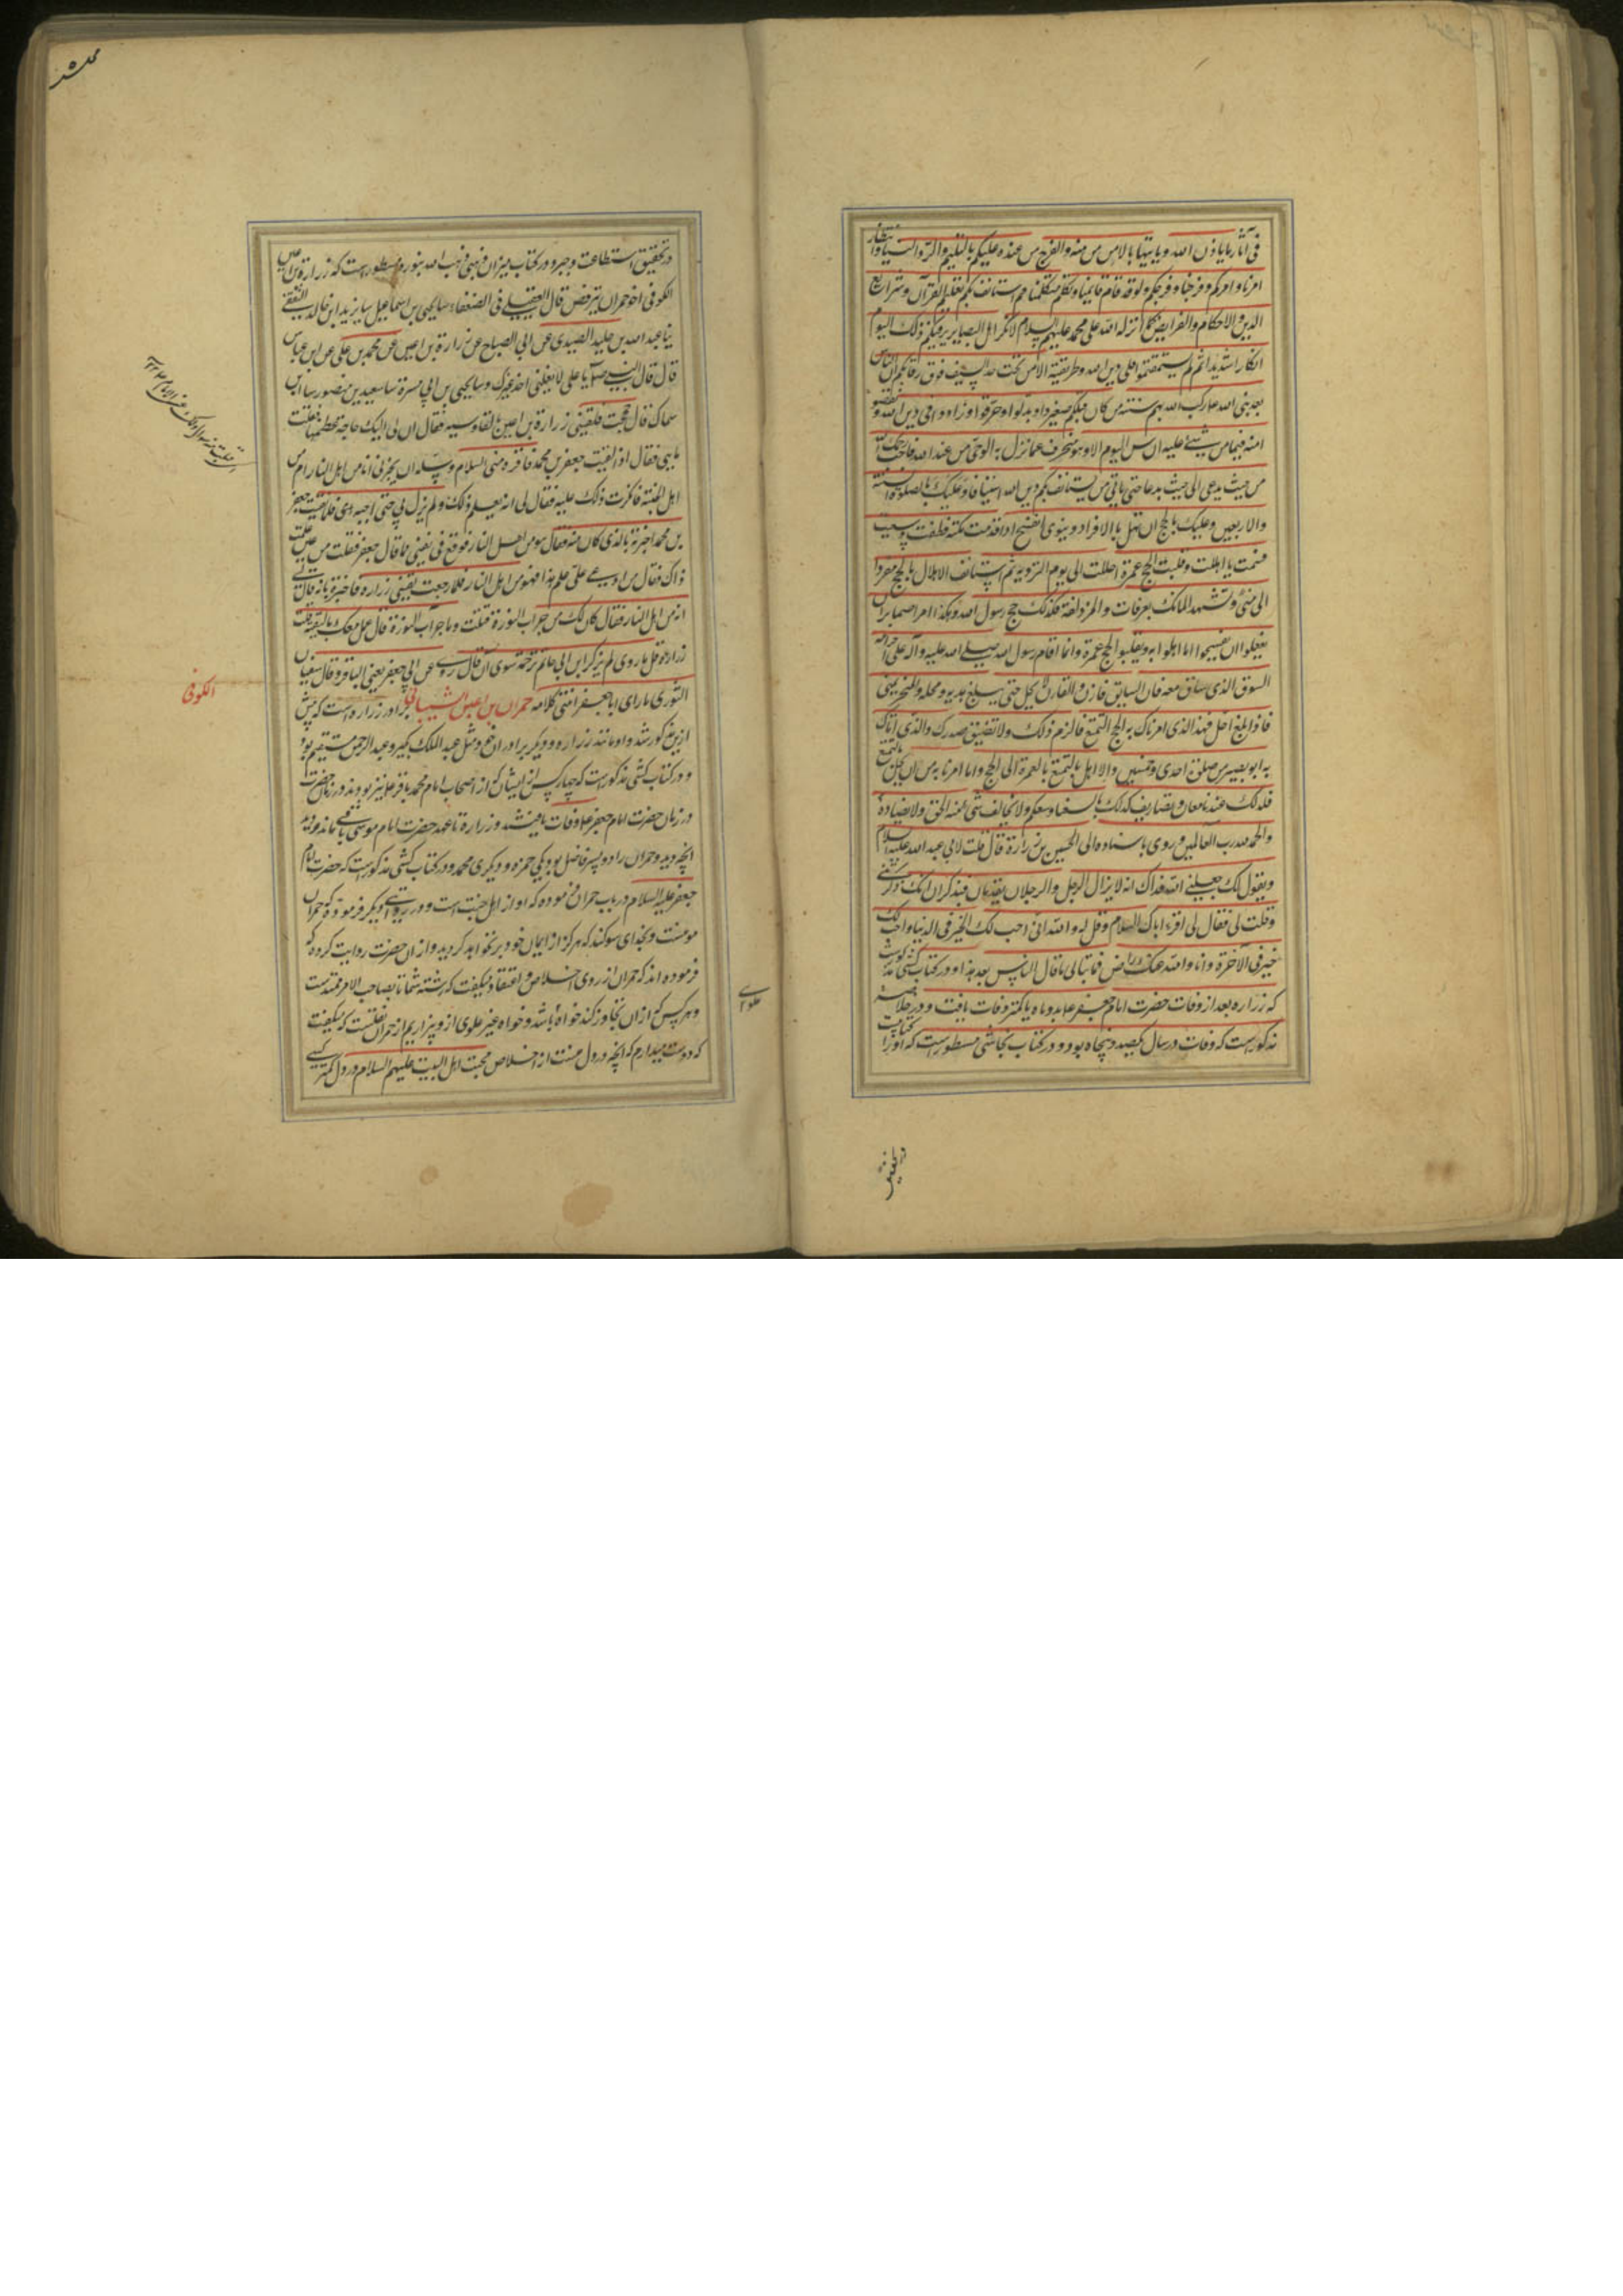 فی آثار ما یاذن الله ویاتیها بالامن من مأمنه والفرج من عنده علیکم بالتسلیم والرد الینا وانتظار
امرنا وامرکم وفرجنا وفرجکم ولو قد قام قائمنا وتکلم متکلمنا ثم استانف بکم تعلیم القرآن وشرایع
الدین والاحکام والفرایض کما انزله الله علی محمد علیهم السلام لانکر اهل البصایر فیکم ذلک الیوم
انکارا شدیدا ثم لم تستقیموا علی دین الله وطریقته الا من تحت حد السیف فوق رقابکم ان الناس
بعد نبی الله رکب الله بهم سنته من کان قبلکم فغیروا وبدلوا وحرفوا وزادوا فی دین الله ونقصوا
امنه فما من شیئ علیه الناس الیوم الا وهو منحرف عما نزل به الوحی من عند الله فاجب رحمک الله
من حیث تدعی الی حیث تدعا حتی یاتی من یستانف بکم دین الله استینافا وعلیک بالصلوة الستة
والاربعین وعلیک بالحج ان تهل بالافراد وینوی الفسخ اذا قدمت مکة فطفت وسعیت
فسخت ما اهللت وقلبت الحج عمرة احللت الی یوم الترویة ثم استانف الاهلال بالحج مفردا
الی منی وتشهد المنافع بعرفات والمزدلفة فکذلک حج رسول الله وهکذا امر اصحابه ان
یفعلوا ان یفسخوا ما اهلوا به ویقلبوا الحج عمرة وانما اقام رسول الله صلی الله علیه وآله علی احرامه
السوق الذی ساق معه فان السایق قارن والقارن لا یحل حتی یبلغ هدیه محله ومحله المنحر بمنی
فاذا بلغ احل فهذا الذی امرناک به الحج التمتع فالزم ذلک ولا تضیقن صدرک والذی اتاک
به ابو بصیر من صلوة احدی وخمسین والاهلال بالتمتع بالعمرة الی الحج وما امرنا به من ان یهل بالتمتع
فلذلک عندنا معان وتصاریف کذلک ما یسعنا ویسعکم ولا یخالف شئ منه الحق ولا یضاده
والحمد لله رب العالمین وروی باسناده الی الحسین بن زرارة قال قلت لابی عبد الله علیه السلام
ویقول لک جعلنی الله فداک انه لا یزال الرجل والرجلان یقدمان فیذکران انک ذکرتنی
وقلت لی فقال لی اقرء اباک السلام وقل له والله انی احب لک الخیر فی الدنیا واحب لک
خیر فی الآخرة وانا والله عنک راض فما تبالی ما قال الناس بعد هذا ودر کتاب کشی مذکورست
که زراره بعد از وفات حضرت امام جعفر ع بدو ماه یا کمتر وفات یافت ودر خلاصه
مذکورست که وفات در سال یکصد وپنجاه بود ودر کتاب نجاشی مسطورست که او را کتابیست
در تحقیق
در تحقیق استطاعت وجبر ودر کتاب میزان ذهبی ذهب الله بنوره مسطورست که زرارة بن اعین
الکوفی اخو حمران یترفض قال العقیلی فی الضعفاء ثنا یحیی بن اسماعیل ثنا یزید ابن خالد الثقفی
ثنا عبد الله بن خلید الصیدی عن ابی الصباح عن زرارة بن اعین عن محمد بن علی عن ابن عباس
قال قال النبی صلعم یا علی لا یغسلنی احد غیرک وثنا یحیی بن ابی مسرة ثنا سعید بن منصور ثنا ابن
سماک قال حججت فلقینی زرارة بن اعین بالقادسیه فقال ان لی الیک حاجة وعظمها فقلت
ما هی فقال اذا لقیت جعفر بن محمد فاقره منی السلام وسله ان یخبرنی انا من اهل النار ام من
اهل الجنة فانکرت ذلک علیه فقال لی انه یعلم ذلک ولم یزل بی حتی اجبته فلما لقیت جعفر
بن محمد اخبرته بالذی کان منه فقال هو من اهل النار فوقع فی نفسی مما قال جعفر فقلت من این علمت
ذاک فقال من ادعی علی علم هذا فهو من اهل النار فلما رجعت لقینی زراره فاخبرته بانه قال لی
انه من اهل النار فقال کال لک من جراب النورة فقلت وما جراب النورة قال عمل معک بالتقیة قلت
زرارة قل ما روی لم یذکر ابن ابی حاتم ترجمة سوی ان قال روی عن ابی جعفر یعنی الباقر وقال سفیان
الثوری ما رای ابا جعفر انتهی کلامه حمران بن اعین الشیبانی برادر زراره است که پیش
الکوفی
ازین مذکور شد واو مانند زراره ودیگر برادران مثل عبد الملک بکیر وعبد الرحمن مستقیم بود
ودر کتاب کشی مذکورست که چهار کس از ایشان که از اصحاب امام محمد باقر علیه نیز بودند در زمان حضرت
در زمان حضرت امام جعفر ع وفات یافتند وزرارة تا عهد حضرت امام موسی باقی ماند ودید
آنچه دید وحمران را دو پسر فاضل بود یکی حمزه ودیگری محمد ودر کتاب کشی مذکورست که حضرت امام
جعفر علیه السلام در باب حمران فرموده که او از اهل جنت است ودر روایتی دیگر فرموده که حمران
مومنست وبخدای سوگند که هرگز از ایمان خود بر نخواهد گردید واز آن حضرت روایت کرده که
فرموده اند که حمران از روی اخلاص واعتقاد میگفت که رشته شما تا بصاحب الامر ممتدست
وهر کس که از آن تجاوز کند خواه باشد وخواه غیر علوی از وبیزاریم از حمران نقلست که میگفت
که دوست میدارم که آنچه در دل منست از اخلاص محبت اهل البیت علیهم السلام در دل کمتر کسی
علوی